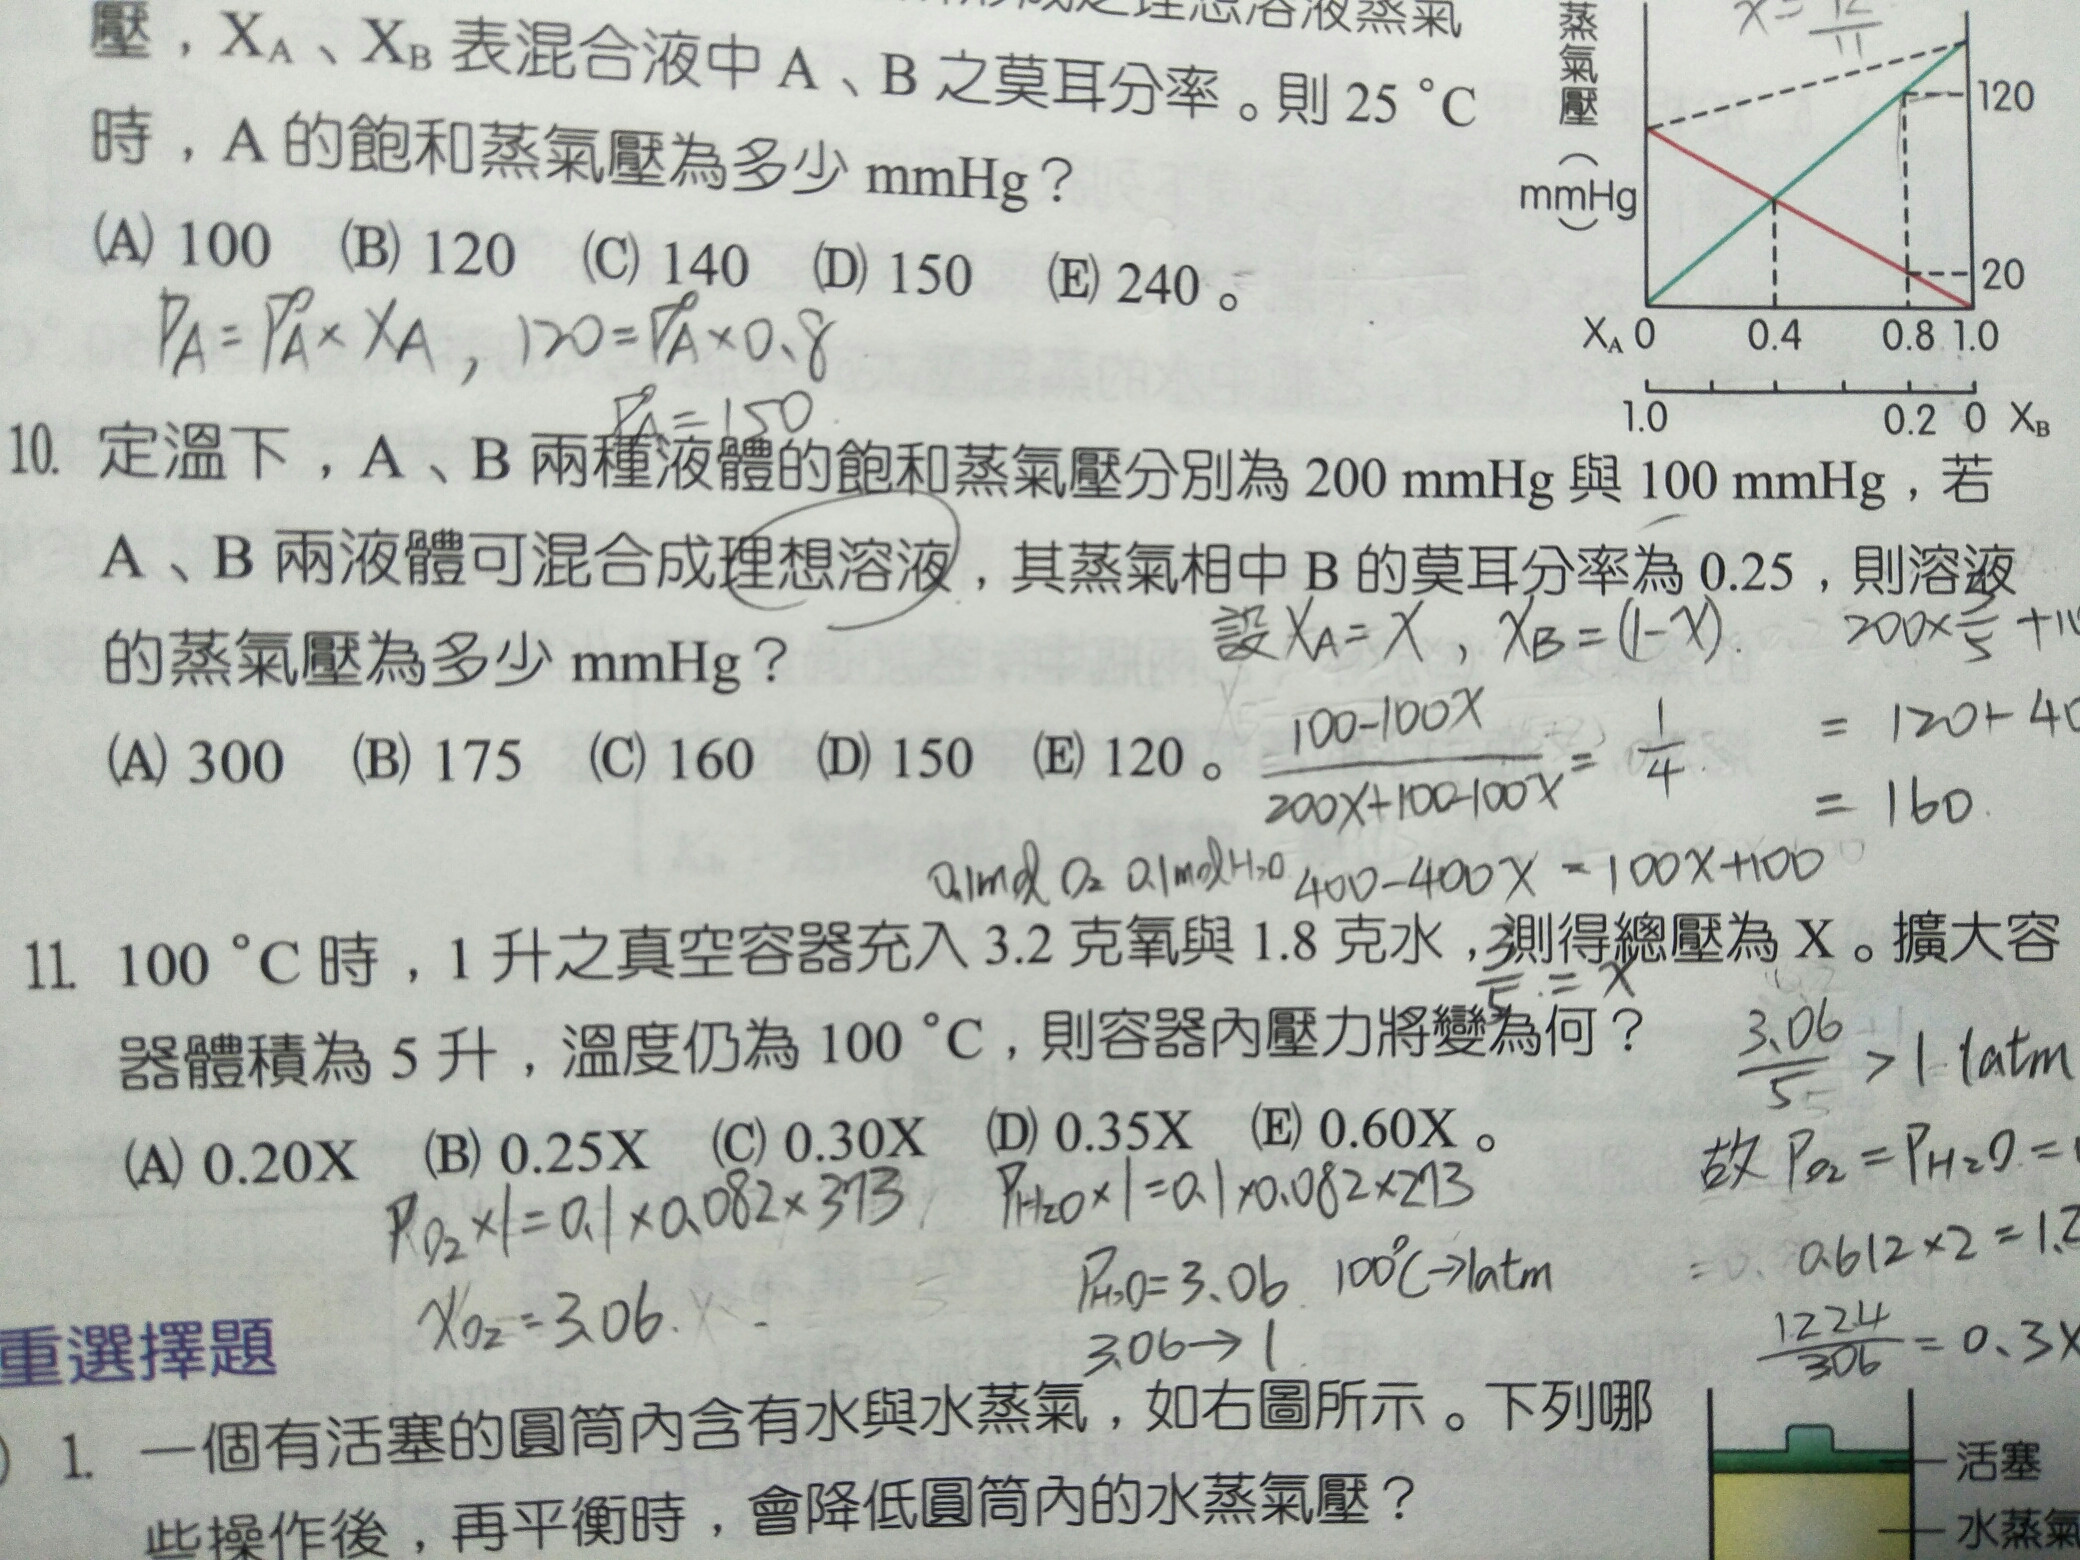 壓，XA、XB 表混合液中 A、B 之莫耳分率。則 25 °C
時，A 的飽和蒸氣壓為多少 mmHg？
(A) 100 (B) 120 (C) 140 (D) 150 (E) 240。
PA = P°A × XA , 120 = P°A × 0.8
P°A = 150
蒸氣壓（mmHg）
120
20
XA 0 0.4 0.8 1.0
1.0 0.2 0 XB
10. 定溫下，A、B 兩種液體的飽和蒸氣壓分別為 200 mmHg 與 100 mmHg，若
A、B 兩液體可混合成理想溶液，其蒸氣相中 B 的莫耳分率為 0.25，則溶液
的蒸氣壓為多少 mmHg？
設 XA = X , XB = (1-X).
(A) 300 (B) 175 (C) 160 (D) 150 (E) 120。
100-100X / 200X+100-100X = 1/4
200×3/5 +
= 120+40
= 160.
400-400X = 100X+100
3/5 = X
0.1mol O2 0.1mol H2O
11. 100 °C 時，1 升之真空容器充入 3.2 克氧與 1.8 克水，測得總壓為 X。擴大容
器體積為 5 升，溫度仍為 100 °C，則容器內壓力將變為何？
(A) 0.20X (B) 0.25X (C) 0.30X (D) 0.35X (E) 0.60X。
PO2×1=0.1×0.082×373
XO2 = 3.06.
PH2O×1=0.1×0.082×273
PH2O=3.06 100°C→1atm
3.06→1
3.06/5 > 1 1atm
故 PO2 = PH2O =
0.612×2 = 1.2
1.224/3.06 = 0.3X
重選擇題
1. 一個有活塞的圓筒內含有水與水蒸氣，如右圖所示。下列哪
些操作後，再平衡時，會降低圓筒內的水蒸氣壓？
活塞
水蒸氣